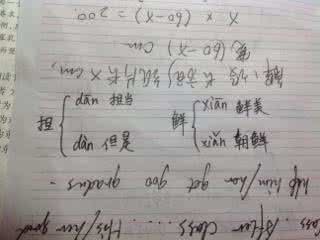 Class. After class ...... His/her good
help him/her get goo gradus.
担 dān 担当 鲜 xiān 鲜美
dàn 但是 xiǎn 朝鲜
解:设长方形纸片长 x cm,
宽 (60-x) cm
x × (60-x) = 200.